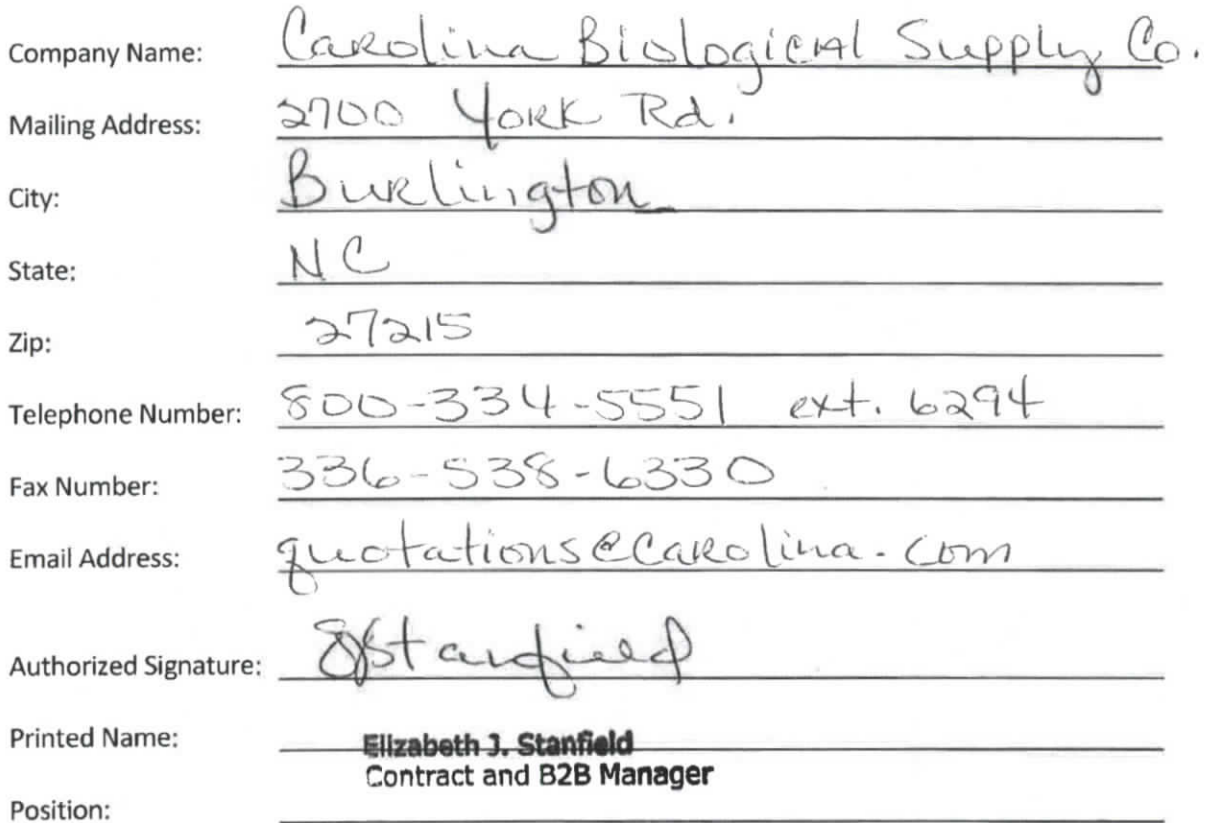 Company Name: Carolina Biological Supply Co.
Mailing Address: 2700 York Rd.
City: Burlington
State: NC
Zip: 27215
Telephone Number: 800-334-5551 ext. 6294
Fax Number: 336-538-6330
Email Address: quotations@carolina.com
Authorized Signature: EJStanfield
Printed Name: Elizabeth J. Stanfield
Contract and B2B Manager
Position: